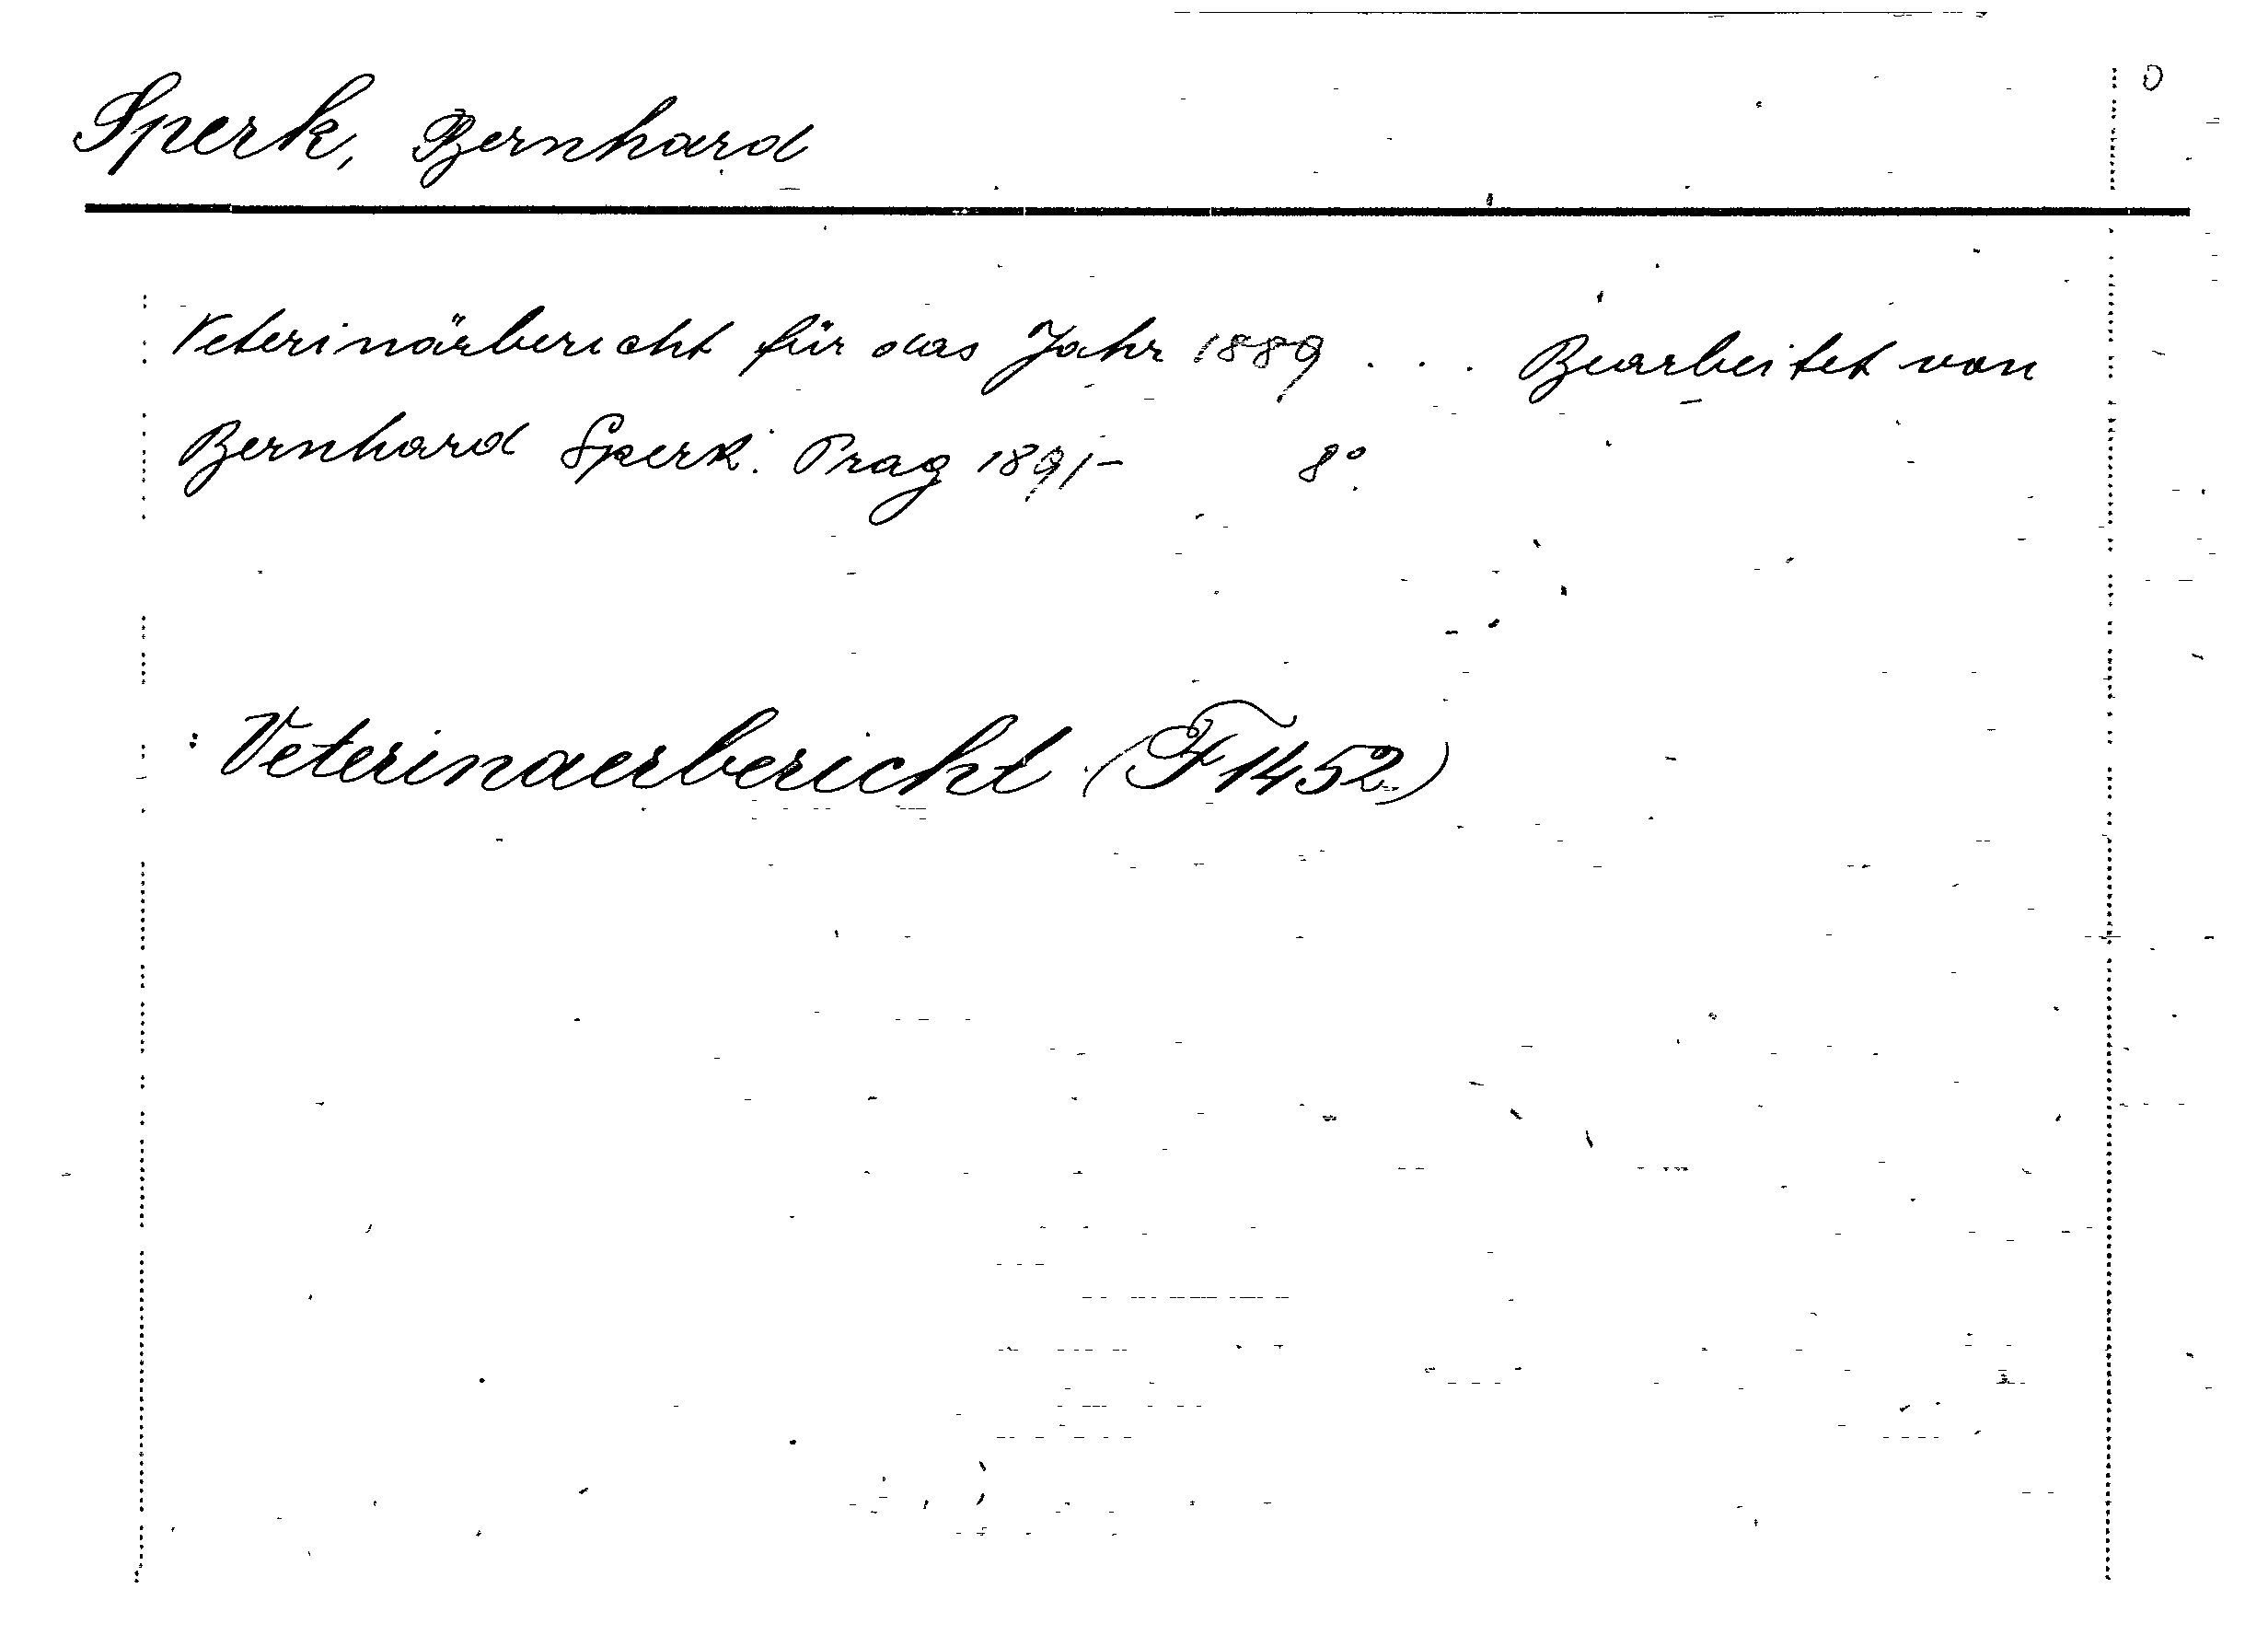 Sperk, Bernhard
Veterinärbericht für das Jahr 1889 . . . Bearbeitet von
Bernhard Sperk. Prag 1891- 8°.
Veterinaerbericht (F 1452)